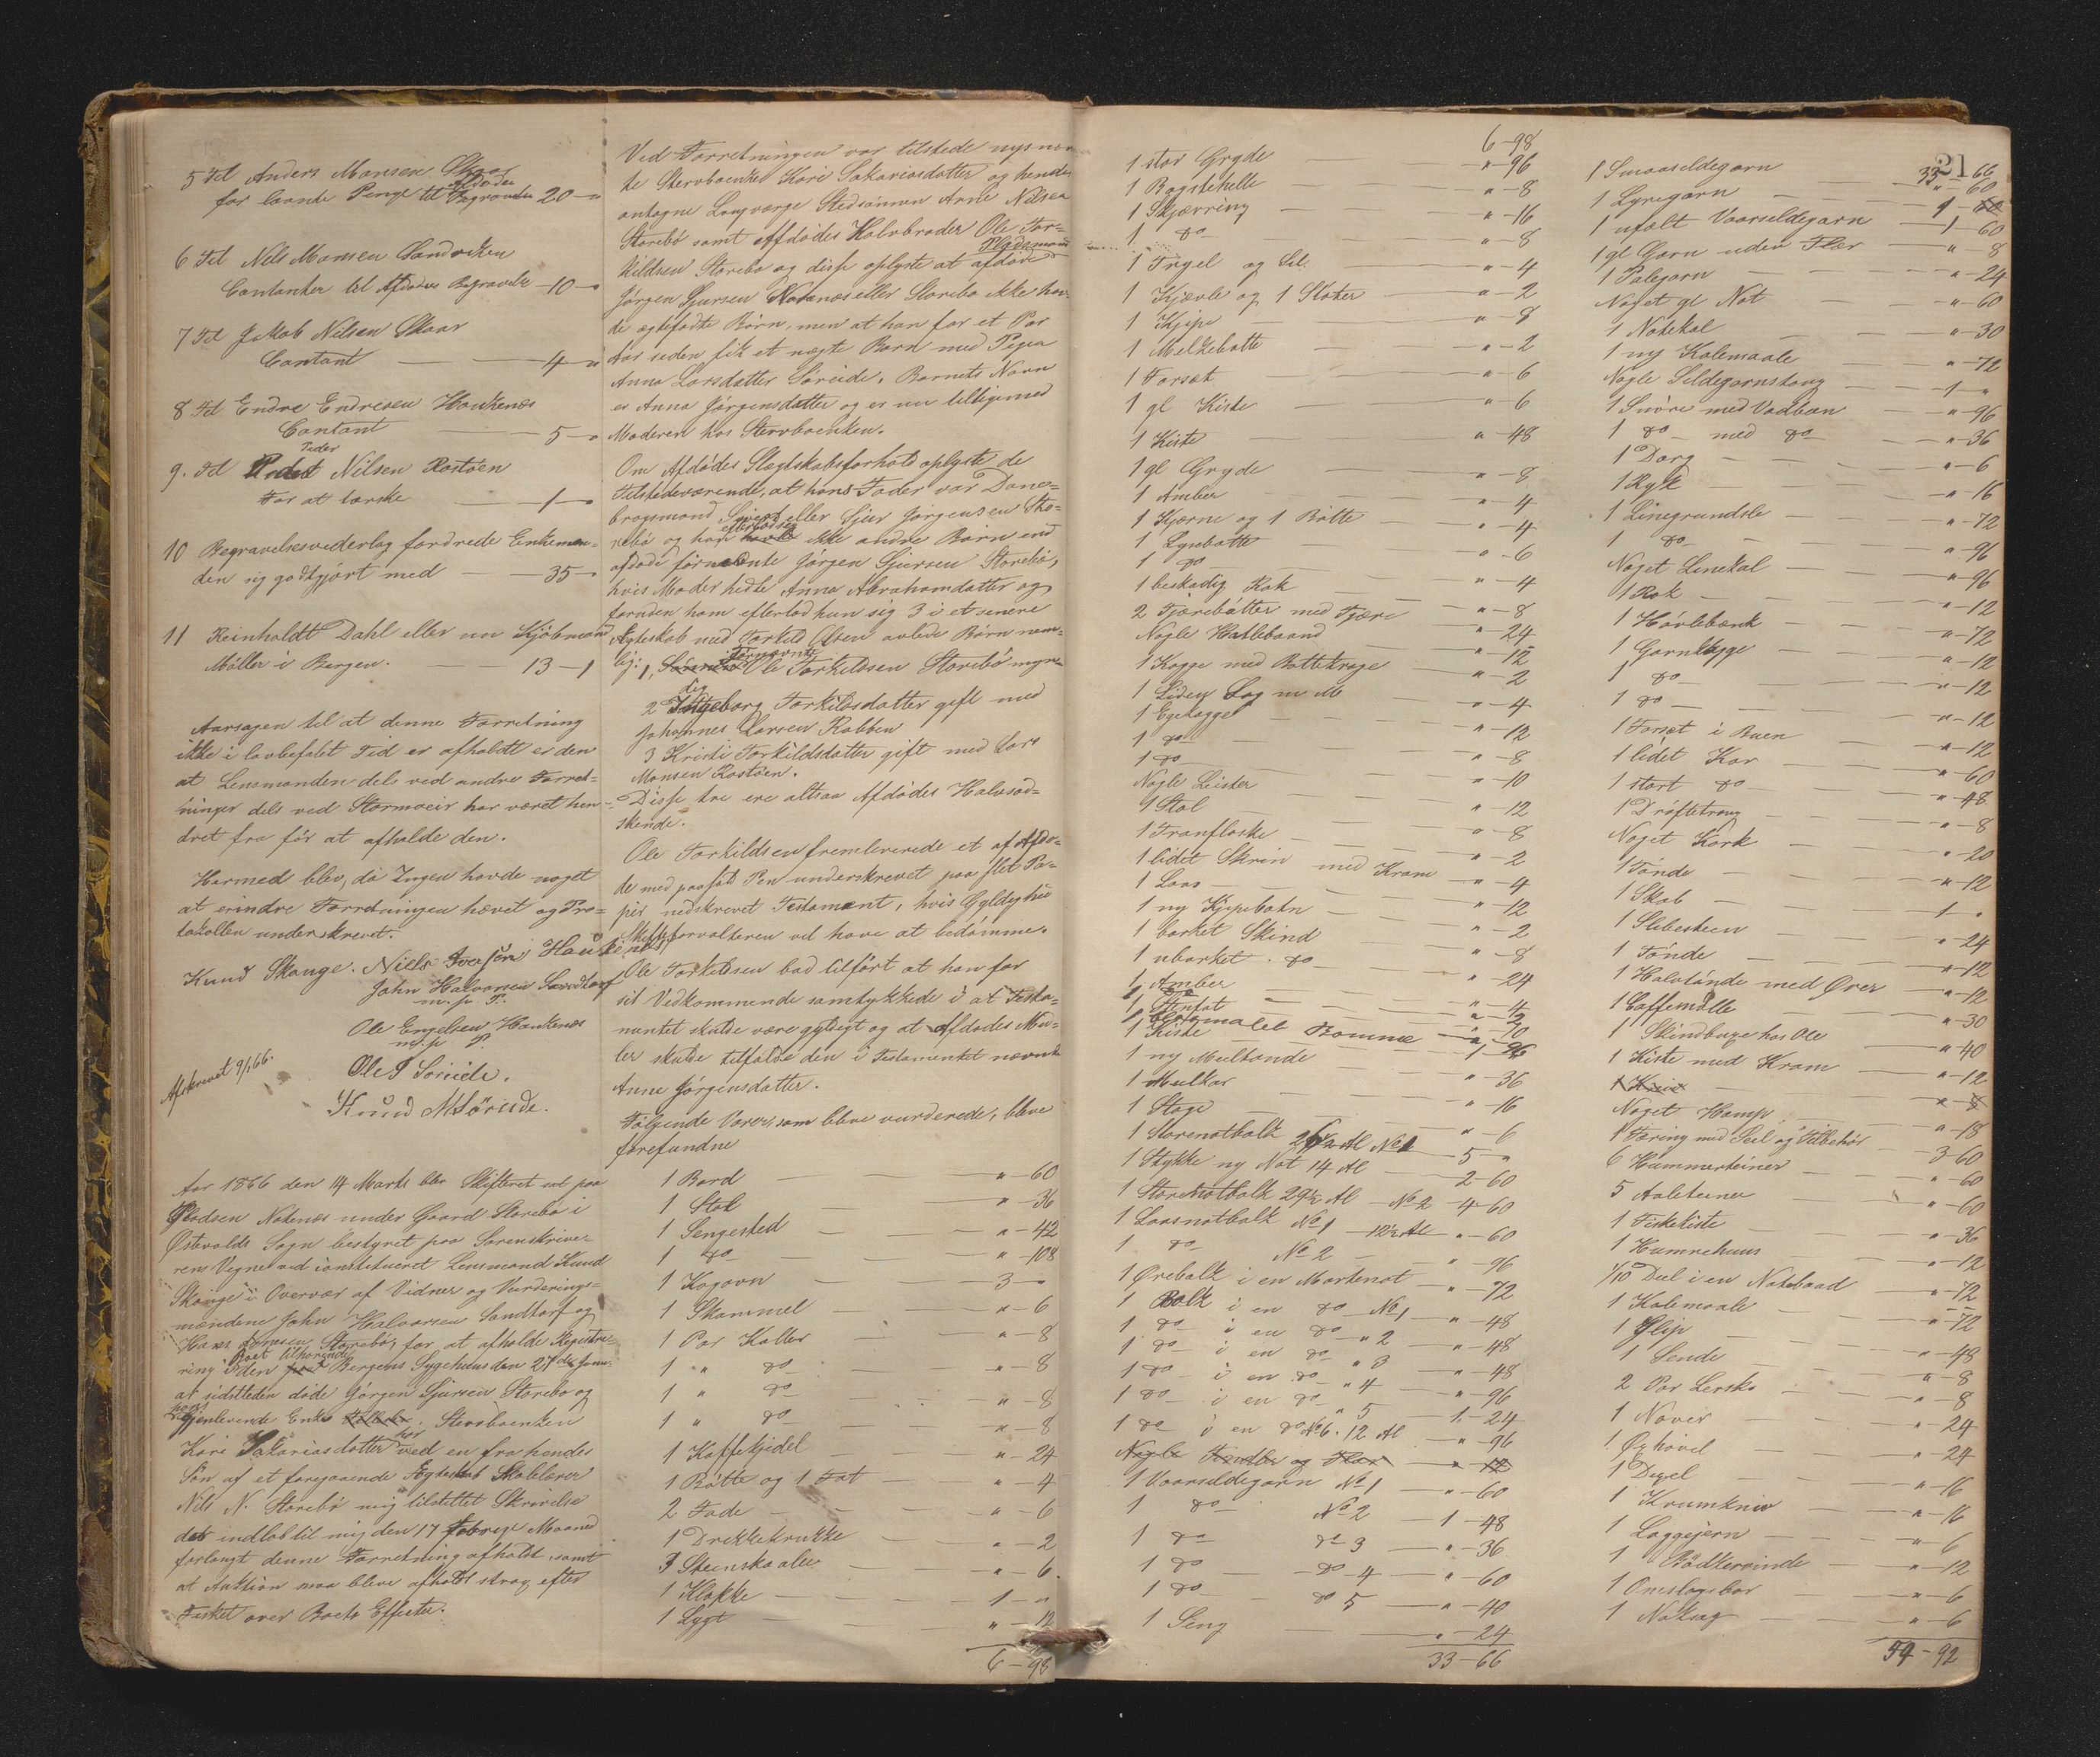 5 Til Anders Monsen Skaar
for laante Penge til Afdødes Begravelse 20 - "
6 Til Nils Monsen Sandviken
Contanter til Afdødes Begravelse - 10 - "
7 Til Jakob Nilsen Skaar
Contant — 4 - "
8 Til Endre Endresen Haukenæs
Contant — 5 - "
9. Til Peder Nilsen Rostøen
For at tærske — 1 - "
10 Begravelsesvederlag fordrede Enkeman-
den sig godtgjort med — 35 - "
11 Reinholdt Dahl eller nu Kjøbmand
Møller i Bergen. — 13 - 1
Aarsagen til at denne Forretning
ikke i lovbefalet Tid er afholdt er den
at Lensmanden dels ved andre Forret-
ninger dels ved Stormveir har været hin-
dret fra før at afholde den.
Hermed blev, da Ingen havde noget
at erindre Forretningen hævet og Pro-
tokollen underskrevet.
Knud Skauge. Niels Iversen Haukenæs
John Halvorsen Sandtorf
m. p. P.
Ole Engelsen Haukenæs
m. p. P.
Ole J Søreide.
Knud M Søreide.
Afskrevet 9/4 66.
Aar 1866 den 14 Marts blev Skifteret sat paa
Pladsen Notenæs under Gaard Storebø i
Østevolds Sogn bestyret paa Sorenskrive-
rens Vegne ved constitueret Lensmand Knud
Skauge i Overvær af Vidner og Vurderings-
mændene John Halvorsen Sandtorf og
Hans Storebø, for at afholde Registre-
ring i Boet tilhørende den paa Bergens Sygehuus den 27de Janu-
ar sidstleden døde Gjørgen Sjursen Storebø og
hans gjenlevende Enke. Stervboenken
Kari Sakariasdatter har ved en fra hendes
Søn af et foregaaende Ægteskab Skolelærer
Nils N. Storebø mig tilstillet Skrivelse
der indløb til mig den 17 forrige Maaned
forlangt denne Forretning afholdt, samt
at Auktion maa blive afholdt strax efter
Fisket over Boets Effecter.
Ved Forretningen var tilstede nysnævn
te Stervboenke Kari Sakariasdatter og hendes
antagne Laugværge Stedsønnen Arne Nilsen
Storebø samt Afdødes Halvbroder Ole Tor-
kildsen Storebø og disse oplyste at afdøde Pladsmand
Jørgen Sjursen Notenæs eller Storebø ikke hav-
de ægtefødte Børn, men at han for et Par
Aar siden fik et uægte Barn med Pigen
Anna Larsdatter Søreide. Barnets Navn
er Anna Jørgensdatter og er nu tilligemed
Moderen hos Stervboenken.
Om Afdødes Slægtskabsforhold oplyste de
Tilstedeværende, at hans Fader var Dane-
brogsmand Sivert eller Sjur Jørgensen Sto-
rebø og han efterlod sig ikke andre Børn end
afdøde førnævnte Jørgen Sjursen Storebø,
hvis Moder hedte Anna Abrahamdatter og
foruden ham efterlod hun sig 3 i et senere
Ægteskab med Torkild Olsen avlede Børn nem-
lig: 1, Førnævnte Ole Torkildsen Storebø myn-
dig
2 Ingeborg Torkildsdatter gift med
Johannes Larsen Rabben
3 Kristi Torkildsdatter gift med Lars
Monsen Rostøen.
Disse tre ere altsaa Afdødes Halvsød-
skende.
Ole Torkildsen fremleverede et af Afdø-
de med paaført Pen underskrevet paa slet Pa-
pir nedskrevet Testament, hvis Gyldighed
Skifteforvalteren vil have at bedømme.
Ole Torkildsen bad tilført at han for
sit Vedkommende samtykkede i at Testa-
mentet skulde være gyldigt og at Afdødes Mid-
ler skulde tilfalde den i Testamentet nævnte
Anne Jørgensdatter.
Følgende Varer, som bleve vurderede, bleve
forefundne
1 Bord — " - 60
1 Stol — " - 36
1 Sengested — " - 42
1 do — " - 108
1 Kogovn — 3 - "
1 Skammel — " - 6
1 Par Kaller — " - 8
1 " do — " - 8
1 " do — " - 8
1 " do — " - 8
1 Kaffekjedel — " - 24
1 Bøtte og 1 Fat — " - 4
2 Fade — " - 6
1 Drikkekrukke — " - 2
3 Steenskaaler — " - 6.
1 Klokke — 1 - "
1 Lygt — " - 12
6 - 98
6 - 98
1 stor Gryde — " - 96
1 Bagstehelle — " - 8
1 Skjærring — " - 16
1 do — " - 8
1 Trygel og Lil. — " - 4
1 Kjævle og 1 Sloker — " - 2
1 Kjipe — " - 8
1 Melkebøtte — " - 2
1 Forsæt — " - 6
1 gl Kiste — " - 6
1 Kiste — " - 48
1 gl Gryde — " - 8
1 Amber — " - 4
1 Kjærne og 1 Bøtte — " - 4
1 Lysebøtte — " - 6
1 do — " - 4
1 beskadig Rok — " - 8
2 Tjærebøtter med Tjære — " - 24
Nogle Hatlebaand — " - 12
1 Kagge med Bøttekrage — " - 2
1 Liden Lag m. M — " - 4
1 Egekagge — " - 12
1 do — " - 8
1 do — " - 10
Nogle Leister — " - 12
1 Stol — " - 8
1 Tranflaske — " - 2
1 lidet Skrin med Kram — " - 4
1 Laas — " - 12
1 ny Kjipebotn — " - 2
1 barket Skind — " - 8
1 ubarket do — " - 24
1 Amber — " - 4
1 Stenfat — " - 2
1 Blommalet Bomme — " - 10
1 Kiste — " - 96
1 ny Meeltønde — " - 36
1 Meelkar — " - 16
1 Stage — " - 6
1 Storenotbolk 26½ Al No 1 — 5 - "
1 Stykke ny Not 14 Al — 2 - 60
1 Storenotbolk 29½ Al — No 2 — 4 - 60
1 Laasnotbolk No 1 — 12½ Al — " - 60
1 do No 2 — " - 96
1 Ørebolk i en Mortenot — " - 72
1 Bolk i en do No 1 — " - 48
1 do i en do " 2 — " - 48
1 do i en do " 3 — " - 48
1 do i en do " 4 — " - 96
1 do i en do " 5 — 1 - 24
1 do i en do No 6. 12 Al — " - 96
Nogle og Flær — " - 12
1 Vaarsildegarn No 1 — " - 60
1 do No 2 — 1 - 48
1 do do 3 — " - 36
1 do — do 4 — " - 60
1 do — do 5 — " - 40
1 Seng — " - 24
33 - 66
31
33 - 66
1 Smaasildegarn — " - 60
1 Lyregarn — 1 - 60
1 ufalt Vaarsildegarn — 1 - 60
1 gl Garn uden Flær — " - 8
1 Palegarn — " - 24
Noget gl Not — " - 60
1 Notekal — " - 30
1 ny Kalemaale — " - 72
Nogle Sildegarnstoug — 1 - "
1 Snøre med Vadben — " - 96
1 do — med do — " - 36
1 Dorg — " - 6
1 Ryk — " - 16
1 Linegrundsle — " - 72
1 do — " - 96
Noget Linekal — " - 96
1 Rok — " - 12
1 Høvlebænk — " - 72
1 Garnklygge — " - 12
1 do — " - 12
1 do — " - 12
1 Forsæt i Buen — " - 12
1 lidet Kar — " - 60
1 stort do — " - 48
1 Drøftetroug — " - 8
Noget Kork — " - 20
1 Tønde — " - 12
1 Skab — 1 - "
1 Slibesteen — " - 24
1 Tønde — " - 12
1 Halvtønde med Ører — " - 12
1 Caffemølle — " - 30
1 Skindbuxe hos Ole — " - 40
1 Kiste med Kram — " - 12
1 Kniv — " - 8
Noget Hamp — " - 18
1 Færing med Seil og Tilbehør — 3 - 60
6 Hummerteiner — " - 60
5 Aaleteiner — " - 60
1 Fiskekiste — " - 36
1 Humrehuus — " - 12
1/10 Deel i en Notebaad — " - 72
1 Kalemaale — " - 72
1 Glip — " - 48
1 Sende — " - 8
2 Par Lersko — " - 8
1 Naver — " - 24
1 Øxhøvel — " - 24
1 Dexel — " - 16
1 Krumkniv — " - 16
1 Laggejern — " - 6
1 Bødkervinde — " - 12
1 Omslagsbor — " - 6
1 Noksag — " - 6
54 - 92